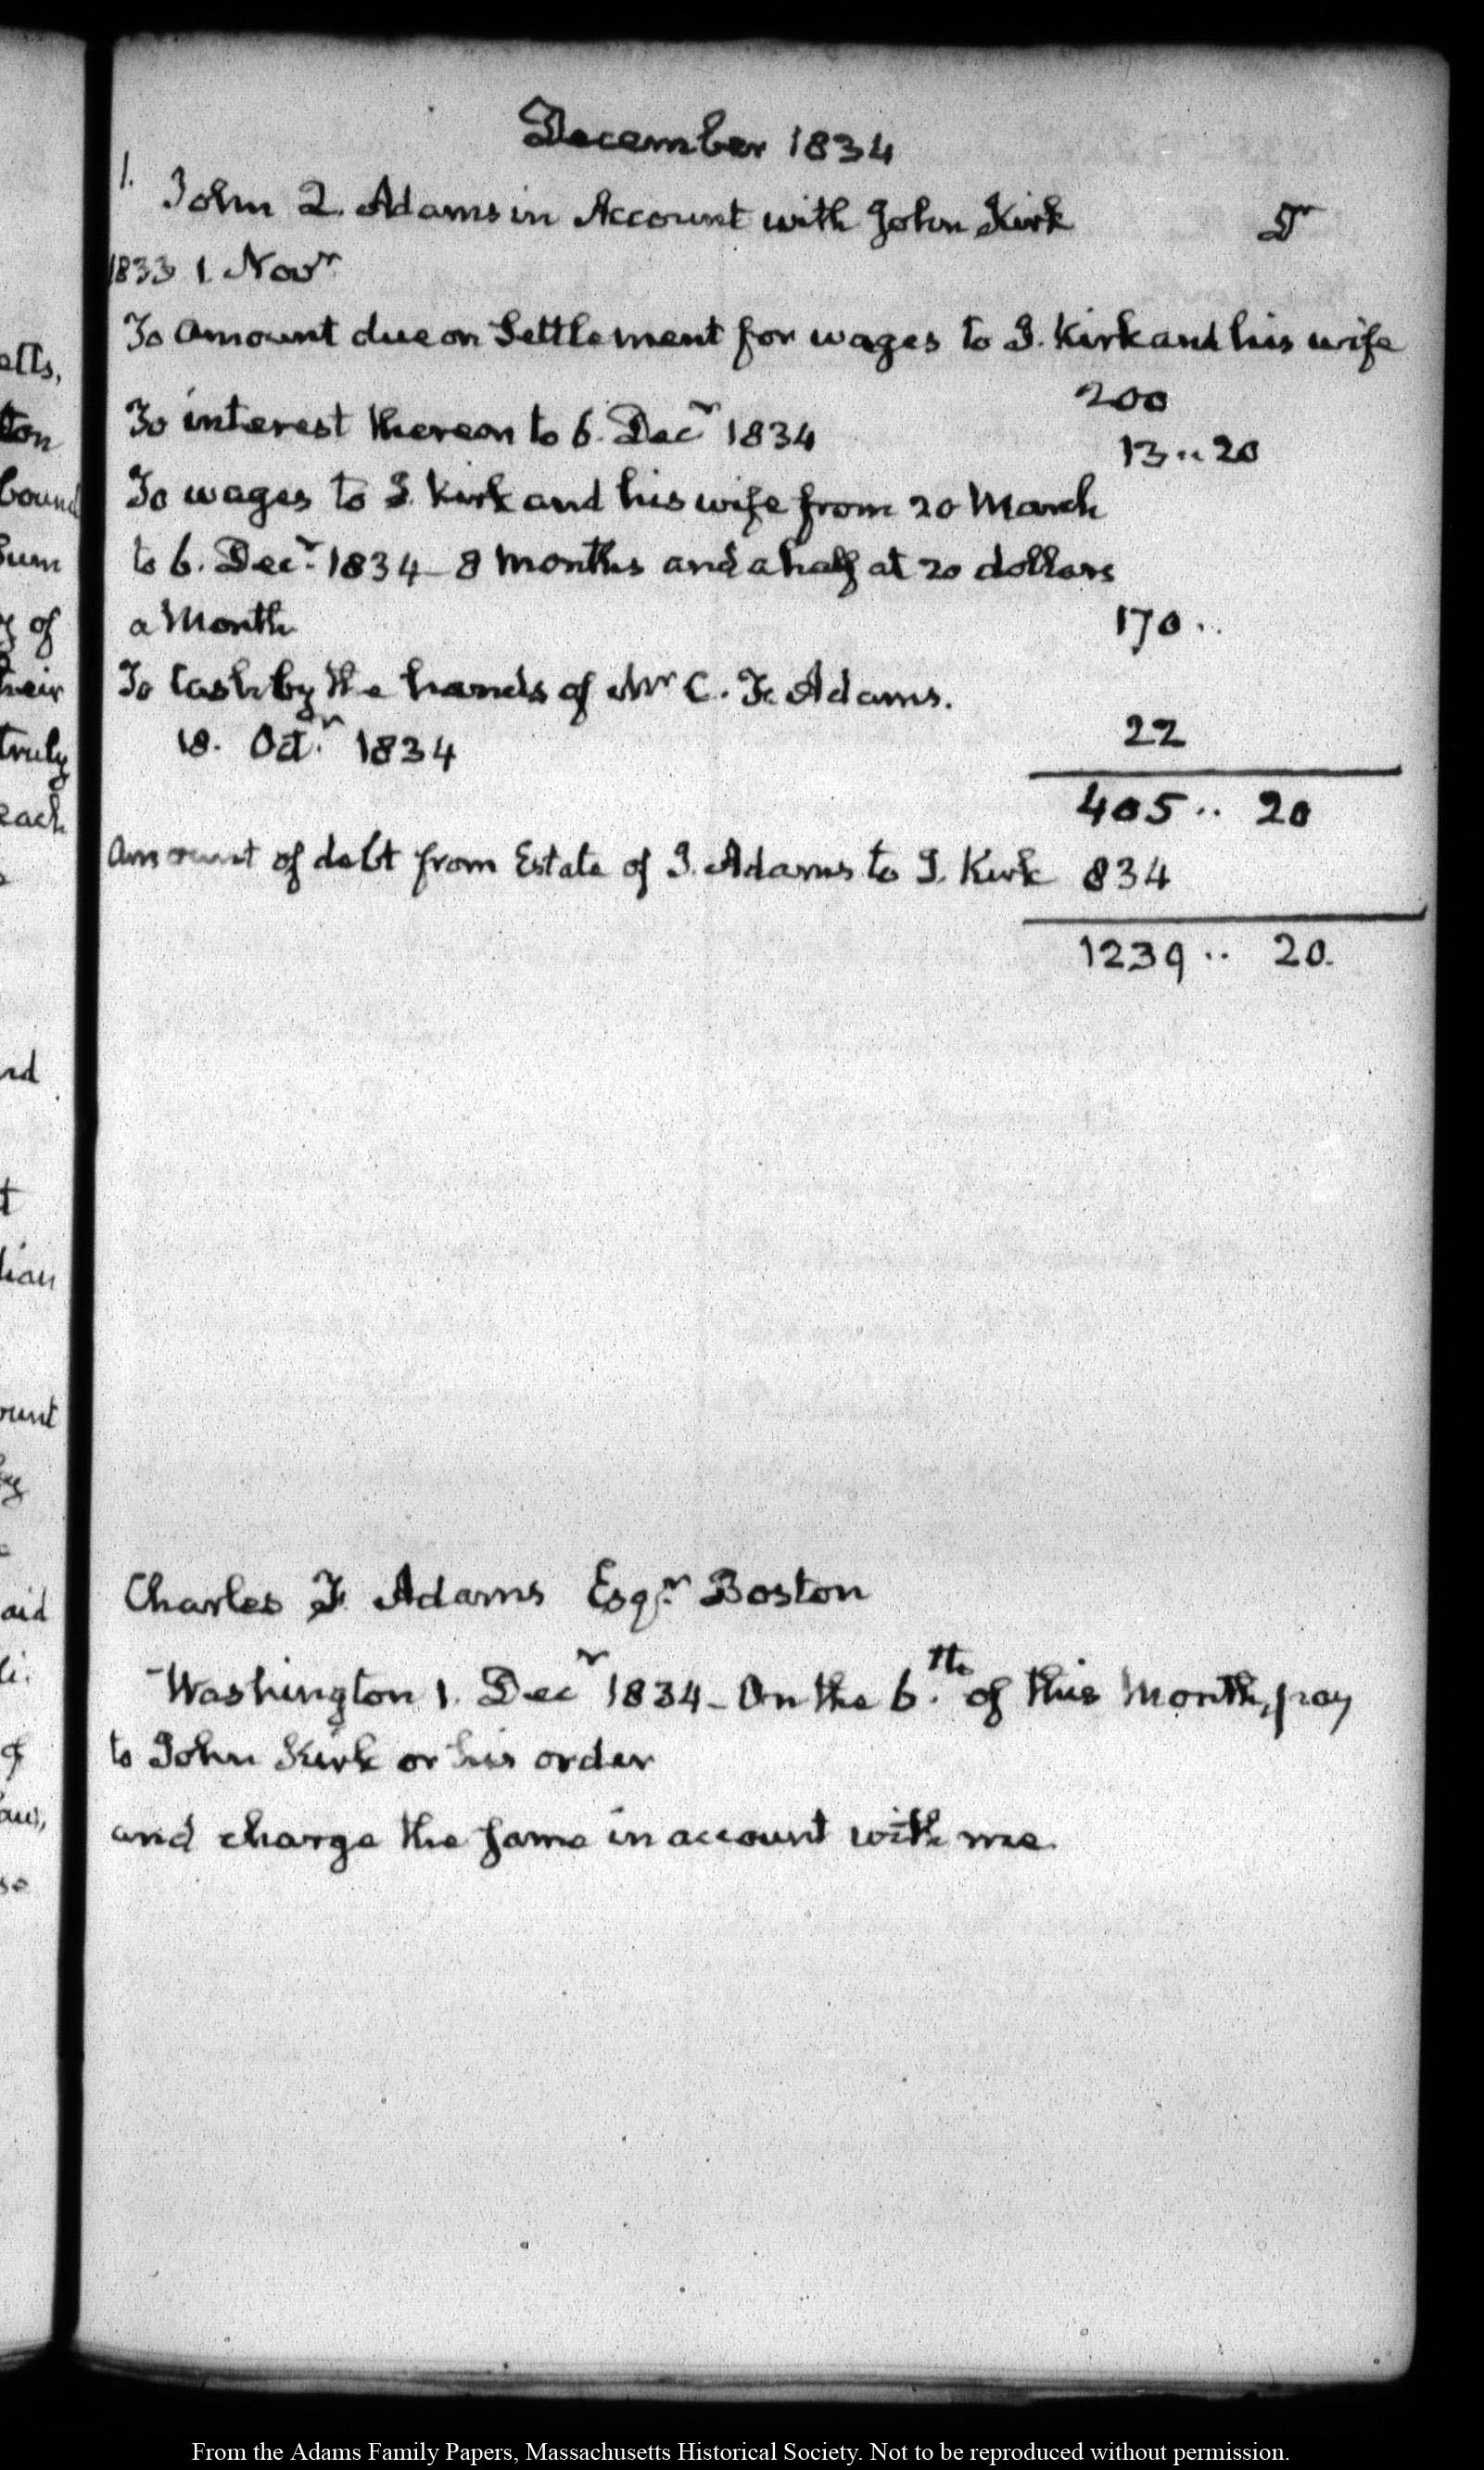 December 1834
1. John Q. Adams in Account with John Kirk Dr
1833 1. Novr
To amount due on Settlement for wages to J. Kirk and his wife
200
To interest thereon to 6. Decr 1834 13..20
To wages to J. Kirk and his wife from 20 March
to 6. Decr 1834 – 8 months and a half at 20 dollars
a Month 170..
To Cash by the hands of Mr C. F. Adams.
18. Octr 1834 22
405.. 20
Amount of debt from Estate of J. Adams to J. Kirk 834
1239.. 20.
Charles F. Adams Esqr. Boston
Washington 1. Decr 1834 – On the 6.th of this Month, pay
to John Kirk or his order
and charge the same in account with me.
etts,
ton
bound
Sum
y of
their
truly
each
nd
t
lian
ount
by
aid
li.
of
aws,
se
From the Adams Family Papers, Massachusetts Historical Society. Not to be reproduced without permission.